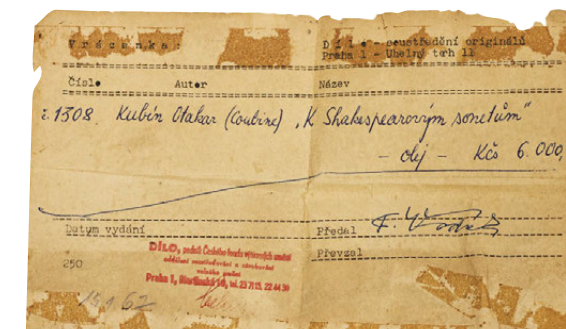 Vrácenka: Dílo - soustředění originálů
Praha 1 - Uhelný trh 11
Číslo Autor Název
č. 1308 Kubín Otakar (Coubine) „K Shakespearovým sonetům"
- olej - Kčs 6.000,
Datum vydání Předal
Převzal
250
DÍLO, podnik Českého fondu výtvarných umění
oddělení soustřeďování a
Praha 1, Martinská
15.1.62